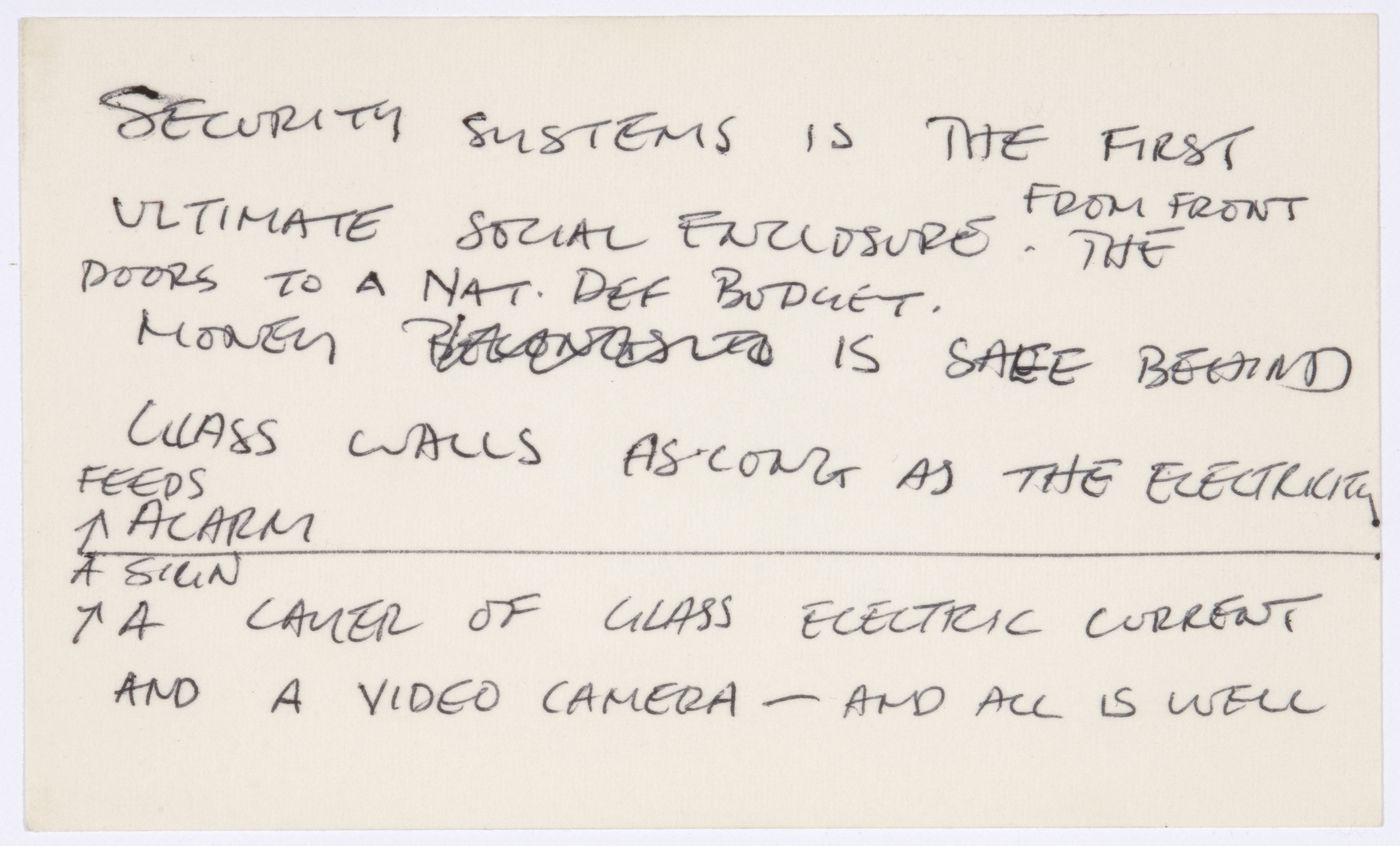 SECURITY SYSTEMS IS THE FIRST
FROM FRONT
ULTIMATE SOCIAL ENCLOSURE. THE
DOORS TO A NAT. DEF BUDGET.
MONEY IS SAFE BEHIND
GLASS WALLS AS LONG AS THE ELECTRICITY
FEEDS
↑ ALARM
A SKIN
↑ A LAYER OF GLASS ELECTRIC CURRENT
AND A VIDEO CAMERA — AND ALL IS WELL